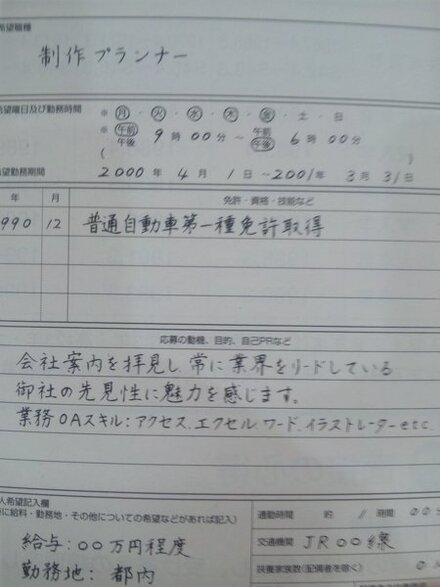 希望職種
制作プランナー
希望曜日及び勤務時間 ※ 月・火・水・木・金・土・日
※ 午前 午後 9時00分～午前 午後 6時00分
( )
希望勤務期間 2000年 4月 1日～2001年 3月31日
年 月 免許・資格・技能など
990 12 普通自動車第一種免許取得
応募の動機、目的、自己PRなど
会社案内を拝見し常に業界をリードしている
御社の先見性に魅力を感じます。
業務OAスキル:アクセス、エクセル、ワード、イラストレーターetc
人希望記入欄
に給料・勤務地・その他についての希望などがあれば記入)
給与:○○万円程度
勤務地:都内
通勤時間 約 / 時間 ○○
交通機関 JR○○線
扶養家族数(配偶者を除く)